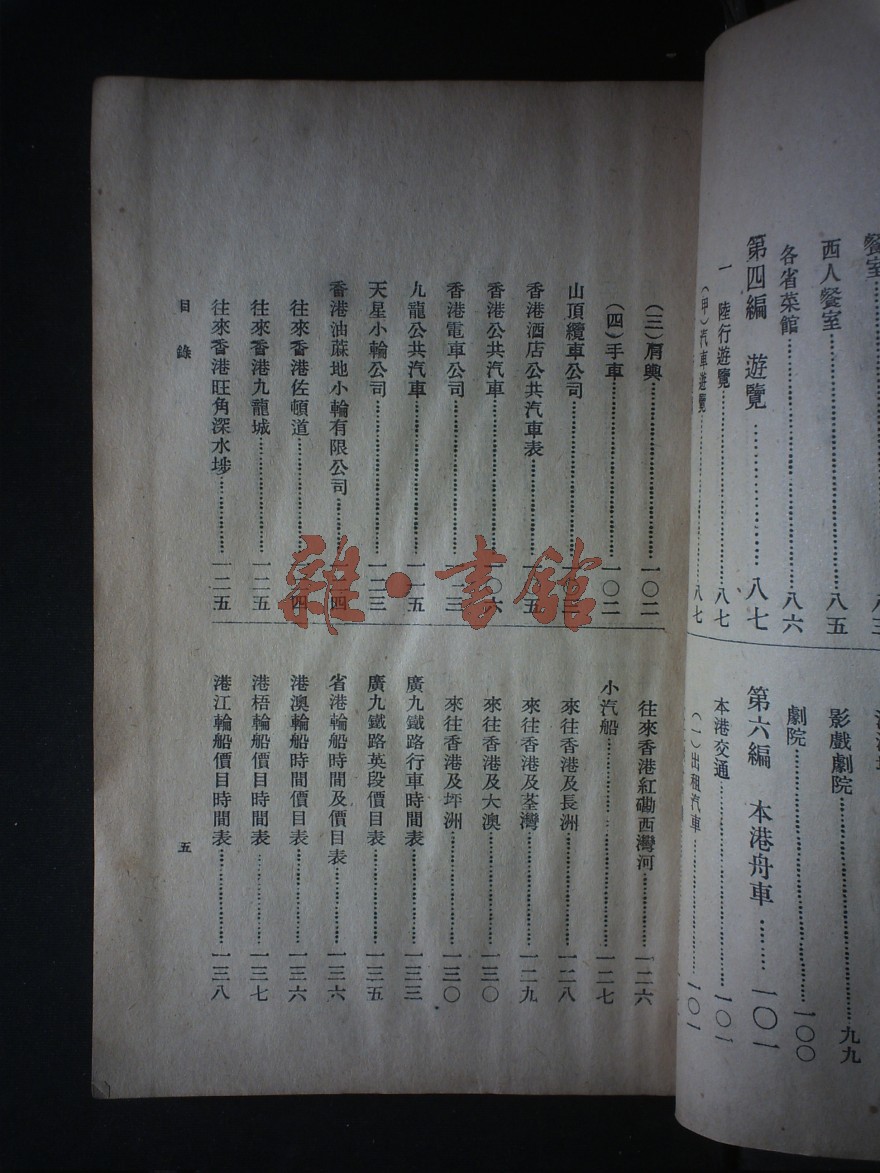 餐室
八三
西人餐室…………八五
各省菜館…………八六
第四編 遊覽…………八七
一 陸行遊覽…………八七
（甲）汽車遊覽…………八七
影戲劇院…………九九
劇院…………一〇〇
第六編 本港舟車……一〇一
本港交通…………一〇一
（一）出租汽車…………一〇一
（三）肩輿…………一〇二
（四）手車…………一〇二
山頂纜車公司…………一〇三
香港酒店公共汽車表…………一〇五
香港公共汽車…………一〇六
香港電車公司…………一一三
九龍公共汽車…………一一五
天星小輪公司…………一二三
香港油蔴地小輪有限公司…………一二四
往來香港佐頓道…………一二四
往來香港九龍城…………一二五
往來香港旺角深水埗…………一二五
往來香港紅磡西灣河…………一二六
小汽船…………一二七
來往香港及長洲…………一二八
來往香港及荃灣…………一二九
來往香港及大澳…………一三〇
來往香港及坪洲…………一三〇
廣九鐵路行車時間表…………一三三
廣九鐵路英段價目表…………一三五
省港輪船時間及價目表…………一三六
港澳輪船時間價目表…………一三六
港梧輪船價目時間表…………一三七
港江輪船價目時間表…………一三八
目錄
五
雜·書館